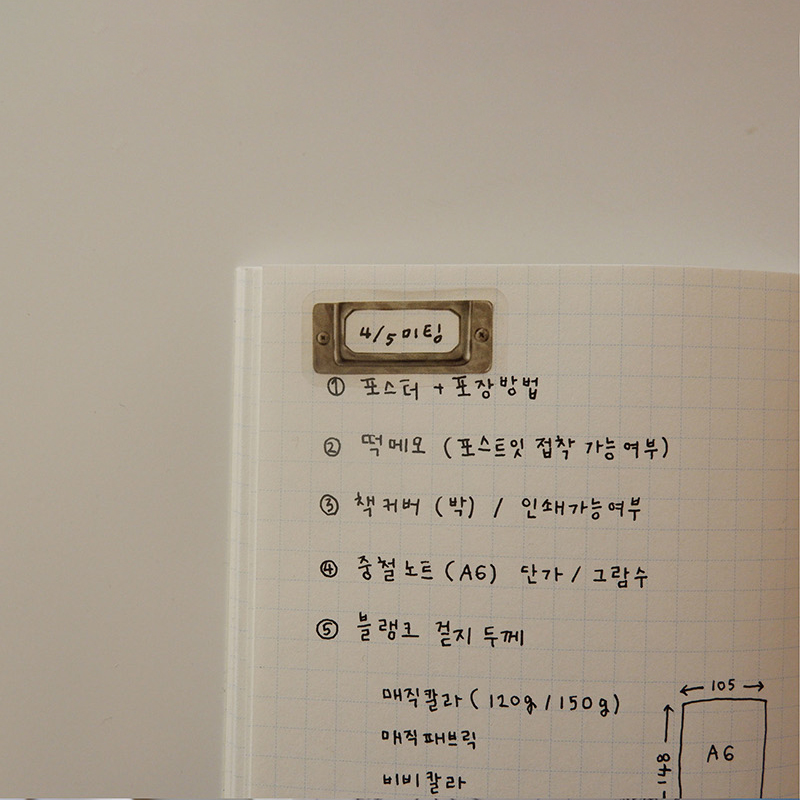 4/5 미팅
① 포스터 + 포장방법
② 떡메모 (포스트잇 접착 가능여부)
③ 책커버 (박) / 인쇄가능여부
④ 중철노트 (A6) 단가 / 그람수
⑤ 블랭크 겉지 두께
매직칼라 (120g / 150g)
매직패브릭
비비칼라
105
148
A6